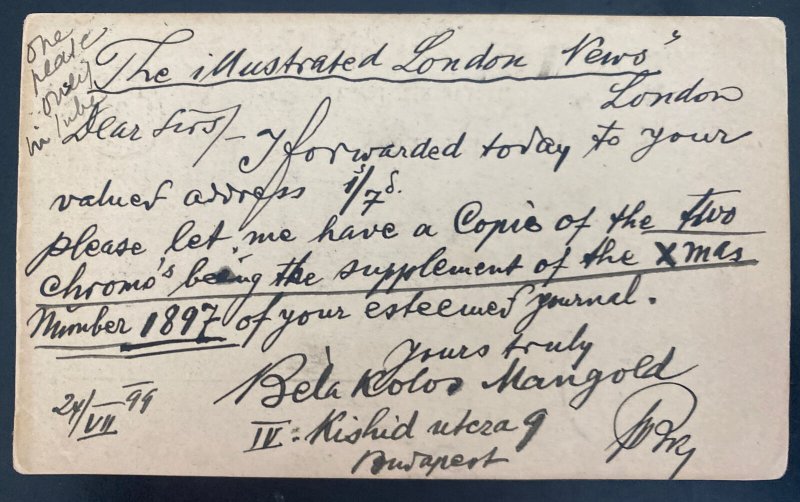 one
over
in tube
"The illustrated London News"
London
Dear Sirs/-
I forwarded today to your
valued address 1s/7d.
please let me have a Copie of the two
chromo's being the supplement of the Xmas
Number 1897 of your esteemed journal.
Yours truly
Béla Kolos Mangold
24/VII 99
IV. Kishid utcza 9
Budapest